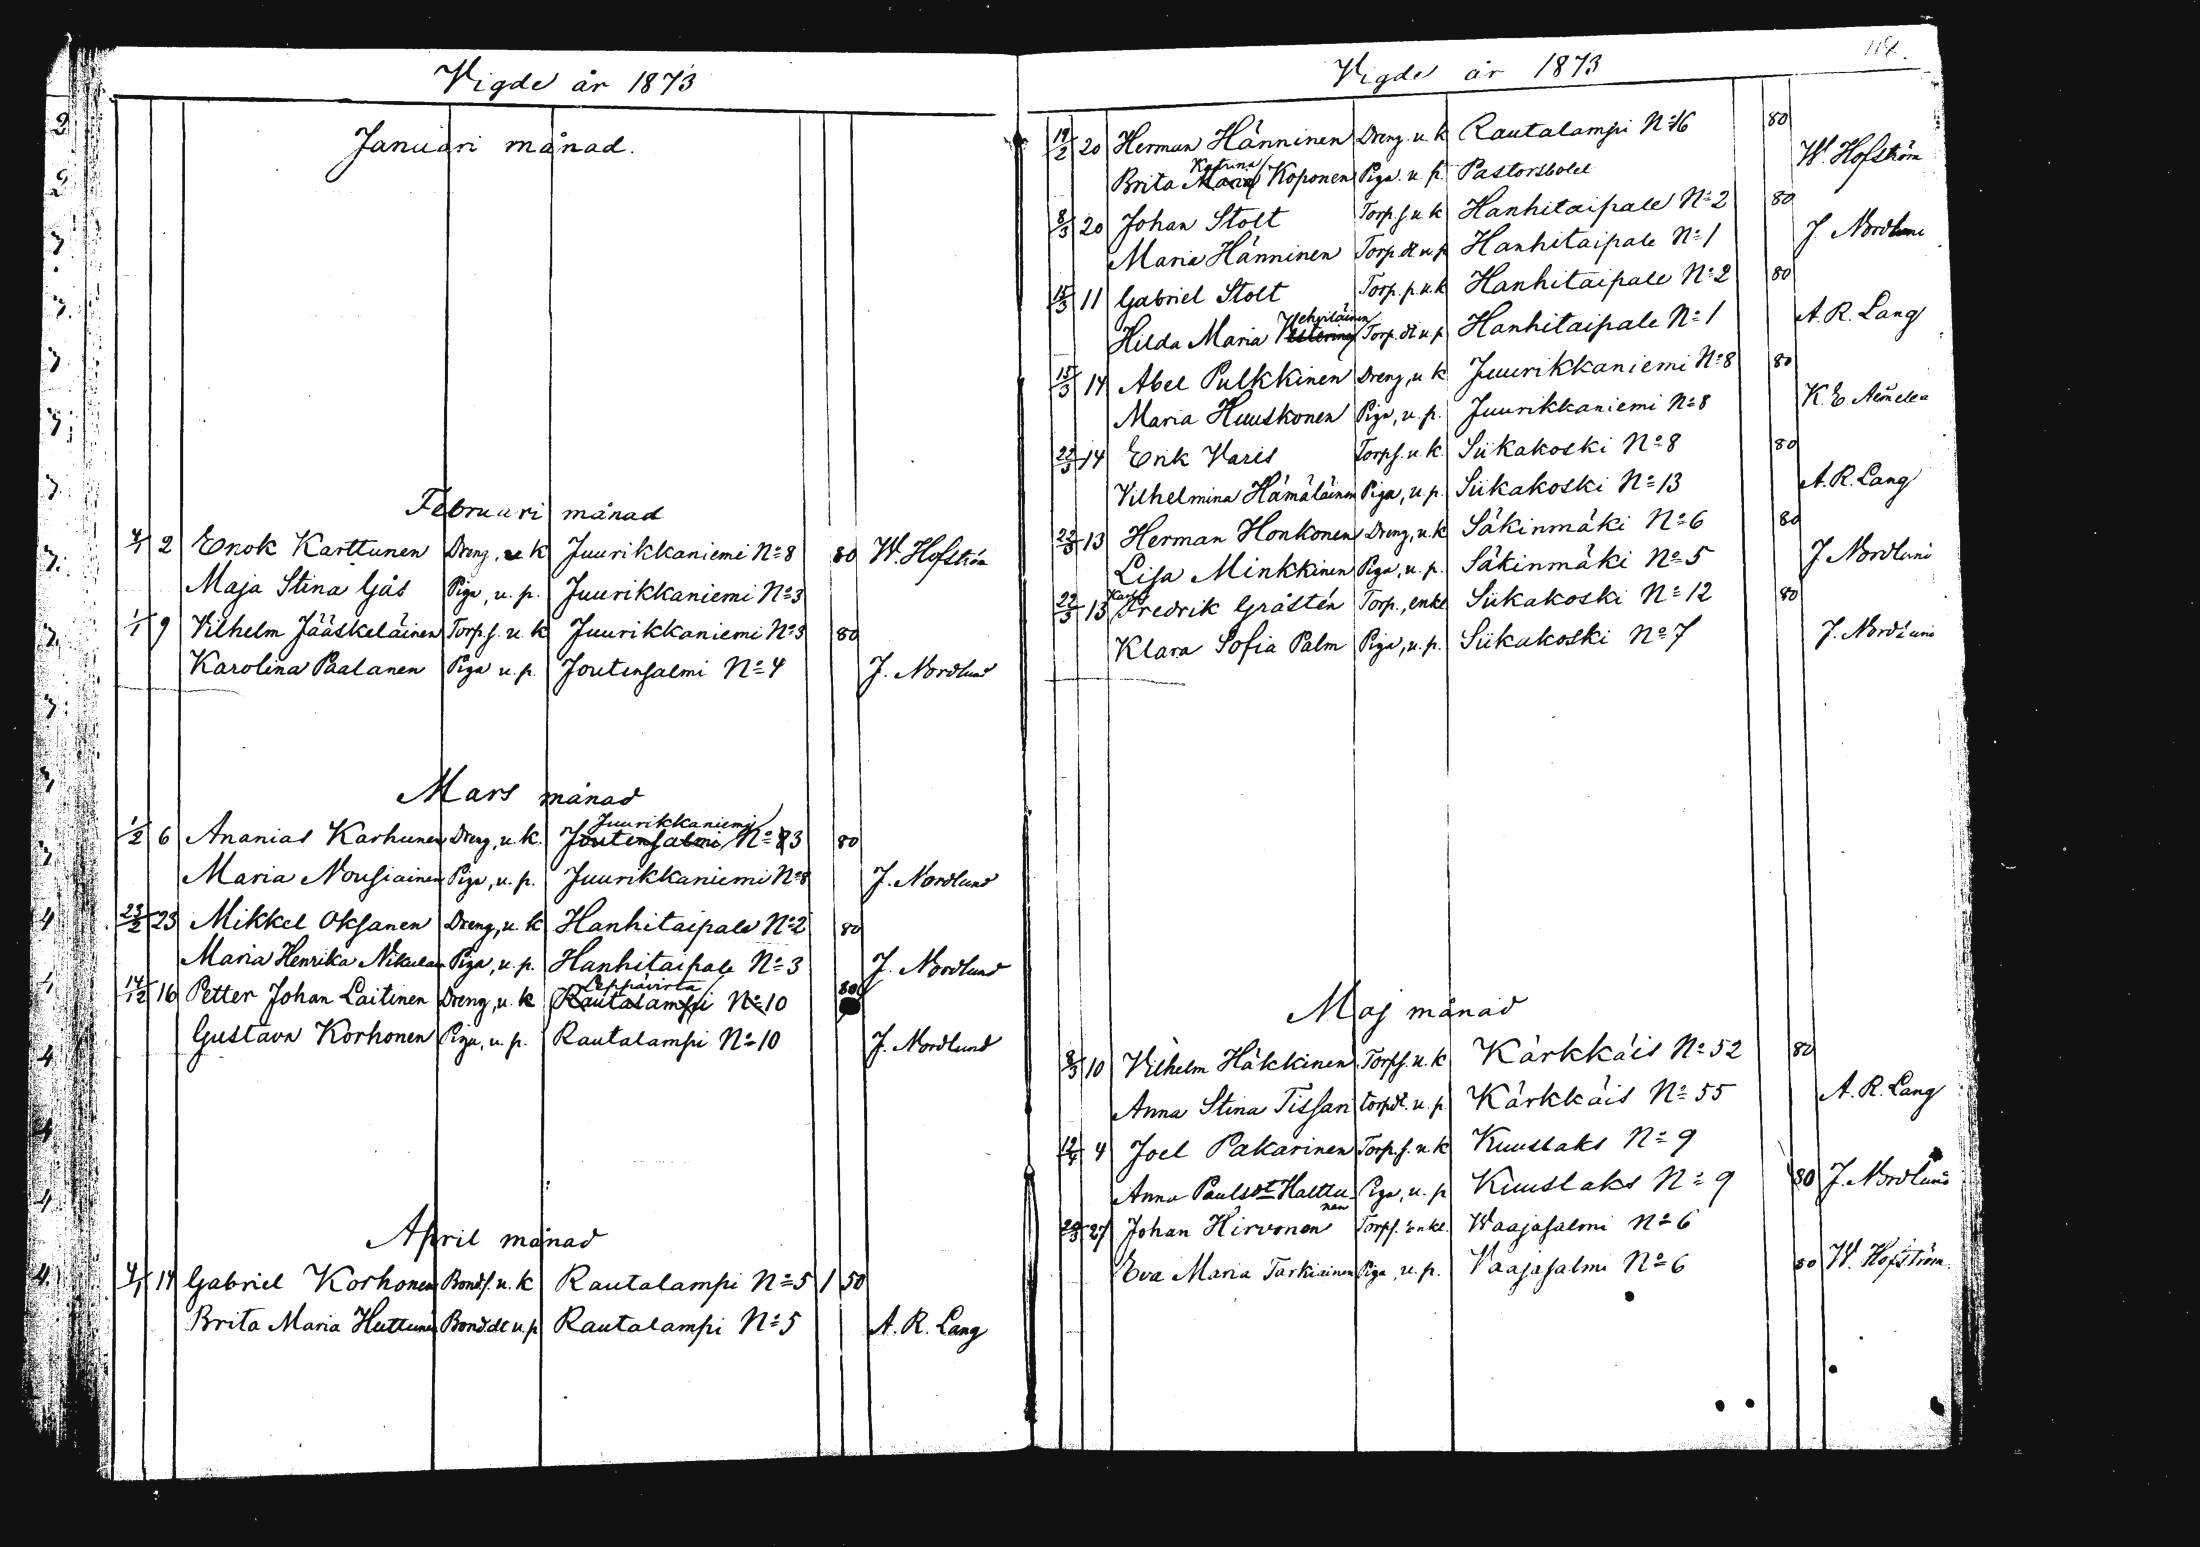 Vigde år 1873
Januari månad.
Februari månad
4/1 2 Enok Karttunen Dreng, u. k Juurikkaniemi No 8 80 W. Hofström
Maja Stina Gås Piga, u. p. Juurikkaniemi No 3
1/1 9 Vilhelm Jääskeläinen Torp.s. u. k Juurikkaniemi No 3 80
Karolina Paalanen Piga u. p. Joutensalmi No 4 J. Nordlund
Mars månad
Juurikkaniemi
1/2 6 Ananias Karhunen Dreng, u. k. Joutensalmi No 3 80
Maria Nousiainen Piga, u. p. Juurikkaniemi No 8 J. Nordlund
23/2 23 Mikkel Oksanen Dreng, u. k Hanhitaipale No 2 80
Maria Henrika Nikulain Piga, u. p. Hanhitaipale No 3 J. Nordlund
Leppävirta
14/12 16 Petter Johan Laitinen Dreng, u. k Rautalampi No 10 80
Gustava Korhonen Piga, u. p. Rautalampi No 10 J. Nordlund
April månad
4/1 14 Gabriel Korhonen Bonds. u. k Rautalampi No 5 1 50
Brita Maria Huttunen Bonddt u. p Rautalampi No 5 A. R. Lang
Vigde år 1873
19/2 20 Herman Hänninen Dreng. u. k Rautalampi No 16 80
Katrina
Brita Maria Koponen Piga. u. p. Pastorsbolet W. Hofström
8/3 20 Johan Stolt Torp.s u. k Hanhitaipale No 2 80
Maria Hänninen Torp.dt u. p Hanhitaipale No 1 J. Nordlund
15/3 11 Gabriel Stolt Torp. p. u. k Hanhitaipale No 2 80
Vehviläinen
Hilda Maria Vesterinen Torp. dt u. p Hanhitaipale No 1 A. R. Lang
15/3 14 Abel Pulkkinen Dreng, u k Juurikkaniemi No 8 80
Maria Huuskonen Piga, u. p. Juurikkaniemi No 8 K. E.
22/3 14 Erik Varis Torps. u. k. Siikakoski No 8 80
Vilhelmina Hämäläinen Piga, u. p. Siikakoski No 13 A. R. Lang
22/3 13 Herman Honkonen Dreng, u. k Säkinmäki No 6 80
Lisa Minkkinen Piga, u. p. Säkinmäki No 5 J Nordlund
Karl
22/3 13 Fredrik Gråstén Torp., enkl Siikakoski No 12 80
Klara Sofia Palm Piga, u. p. Siikakoski No 7 J. Nordlund
Maj månad
8/3 10 Vilhelm Häkkinen Torps. u. k Kärkkäis No 52 80
Anna Stina Tissari torpdt. u. p Kärkkäis No 55 A. R. Lang
12/4 4 Joel Pakarinen Torp. s. u. k Kuuslaks No 9
Anna Paulsdt Halttunen Piga, u. p Kuuslaks No 9 80 J. Nordlund
27 Johan Hirvonen Torps. Enkl. Waajasalmi No 6
Eva Maria Tarkiainen Piga, u. p. Vaajasalmi No 6 80 W. Hofström